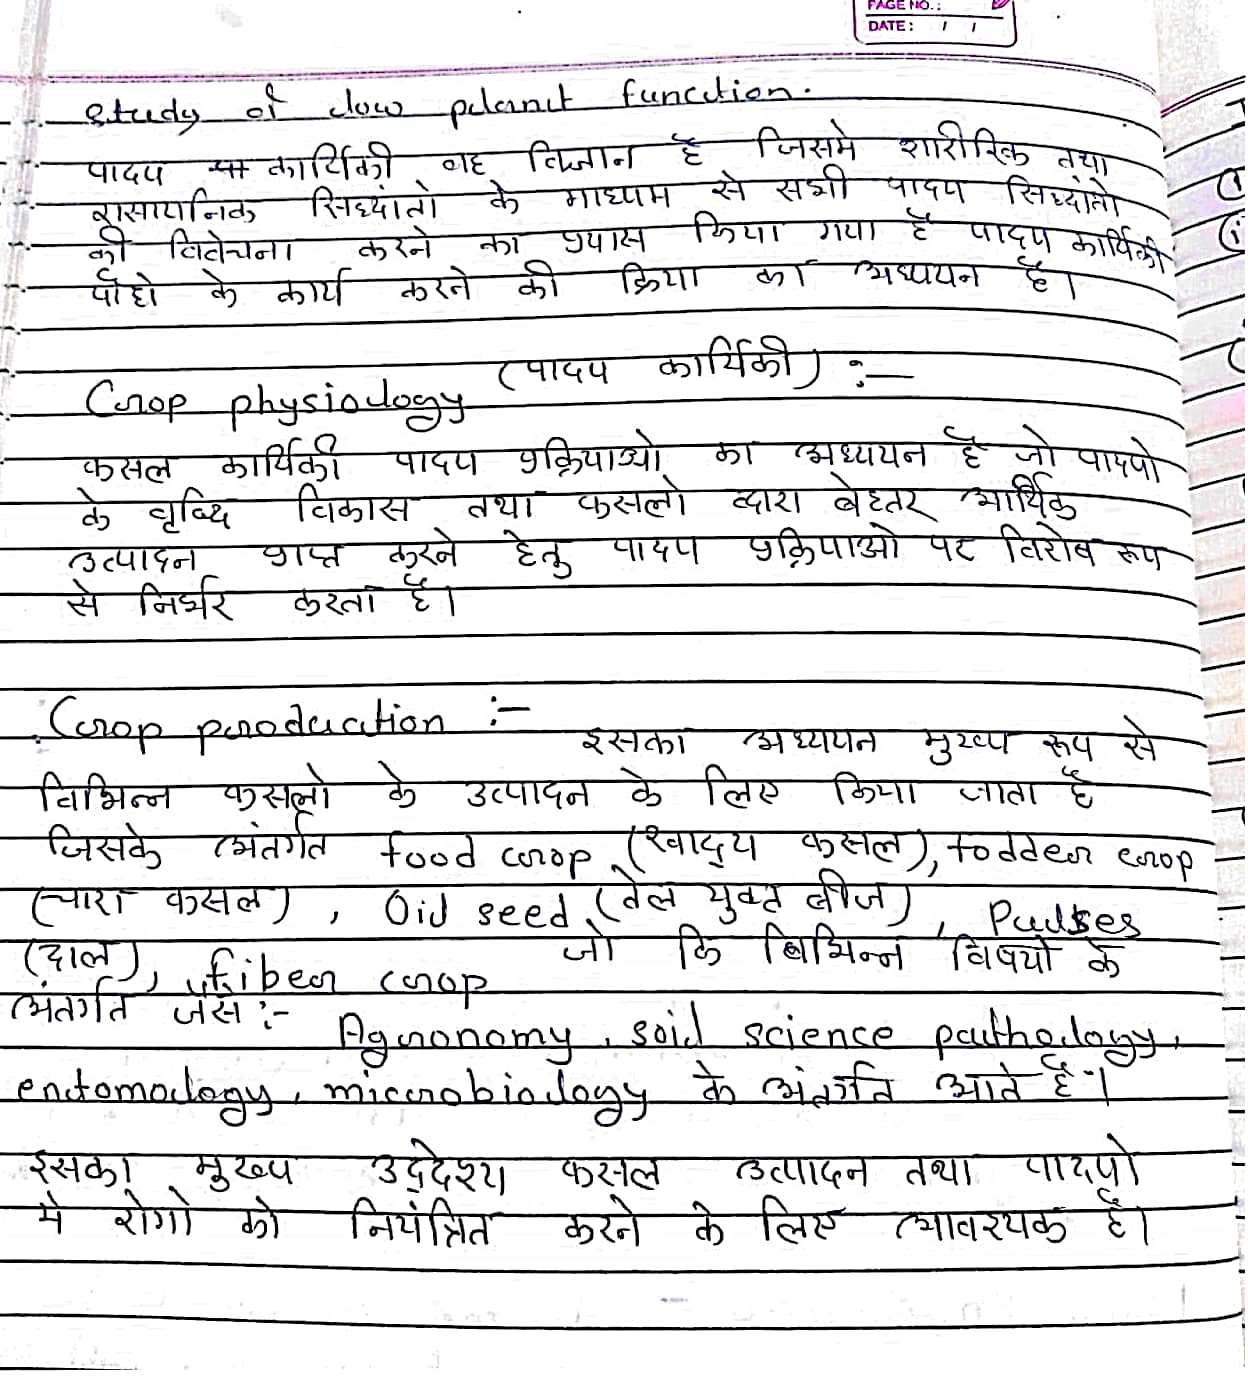 PAGE NO.:
DATE: / /
Study of low plant function.
पादप कार्यिकी वह विज्ञान है जिसमे शारीरिक तथा
रासायनिक सिध्दांतो के माध्यम से सभी पादप सिध्दांतो
की विवेचना करने का प्रयास किया गया है पादप कार्यिकी
पौधो के कार्य करने की क्रिया का अध्ययन है।
Crop physiology (पादप कार्यिकी) :—
फसल कार्यिकी पादप प्रक्रियाओ का अध्ययन है जो पादपो
के वृध्दि विकास तथा फसलो द्वारा बेहतर आर्थिक
उत्पादन प्राप्त करने हेतु पादप प्रक्रियाओ पर विशेष रूप
से निर्भर करता है।
Crop production :—
इसका अध्ययन मुख्य रूप से
विभिन्न फसलो के उत्पादन के लिए किया जाता है
जिसके अंतर्गत food crop (खाद्य फसल), fodder crop
(चारा फसल), Oil seed (तेल युक्त बीज), Pulses
(दाल), fiber crop जो कि विभिन्न विषयो के
अंतर्गत जैसे :-
Agronomy, soil science pathology,
entomology, microbiology के अंतर्गत आते है।
इसका मुख्य उद्देश्य फसल उत्पादन तथा पादपो
मे रोगो को नियंत्रित करने के लिए आवश्यक है।